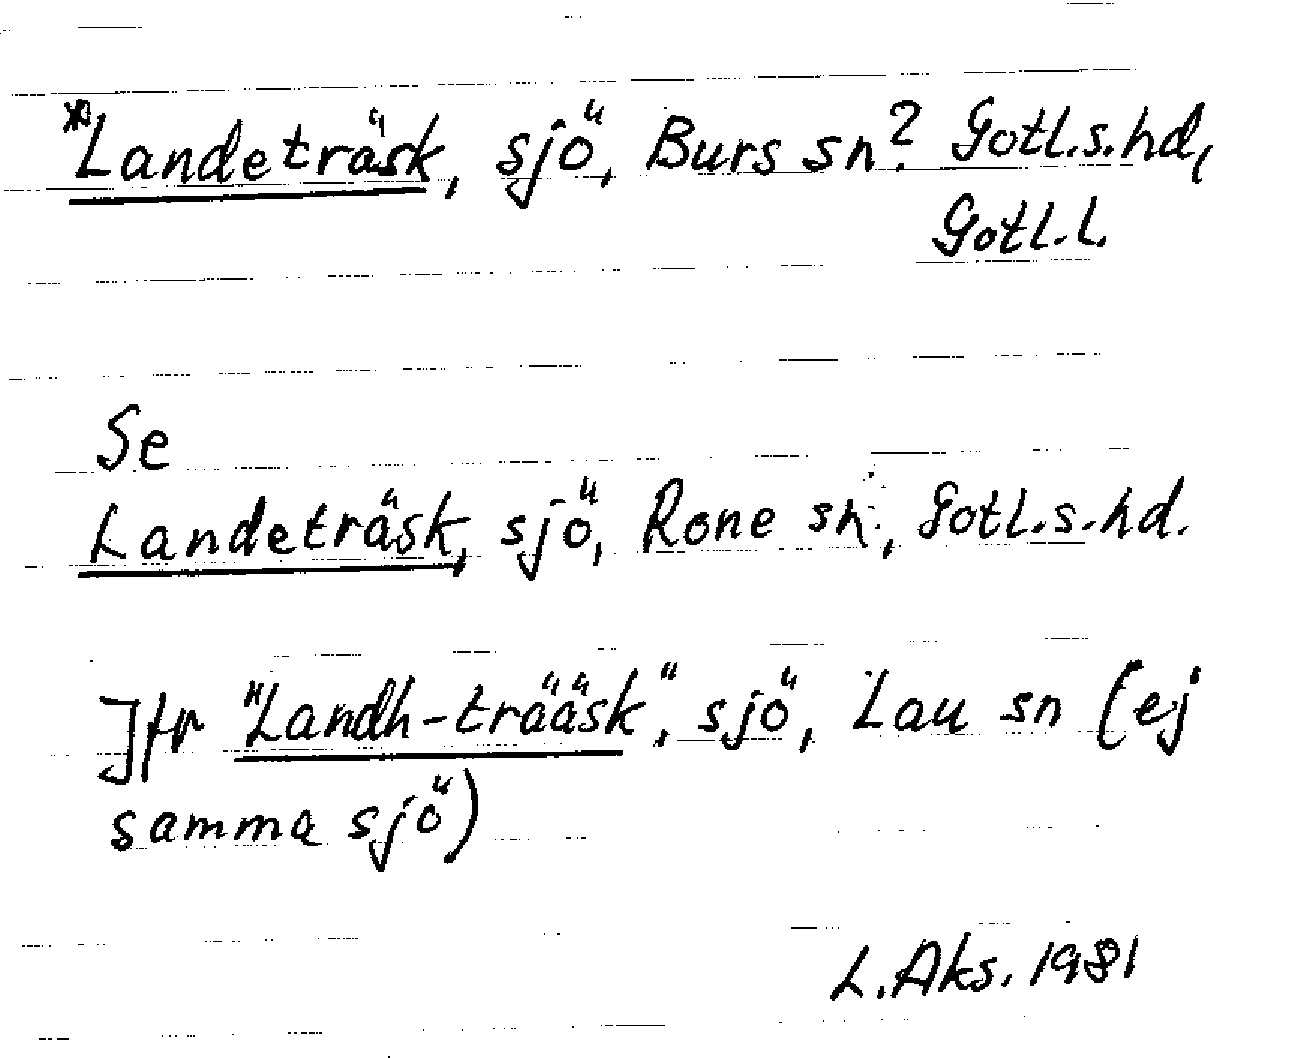 *Landeträsk, sjö, Burs sn? Gotl.s.hd,
Gotl.l.
Se
Landeträsk, sjö, Rone sn, Gotl.s.hd.
Jfr "Landh-trääsk", sjö, Lau sn (ej
samma sjö)
L.Aks. 1981